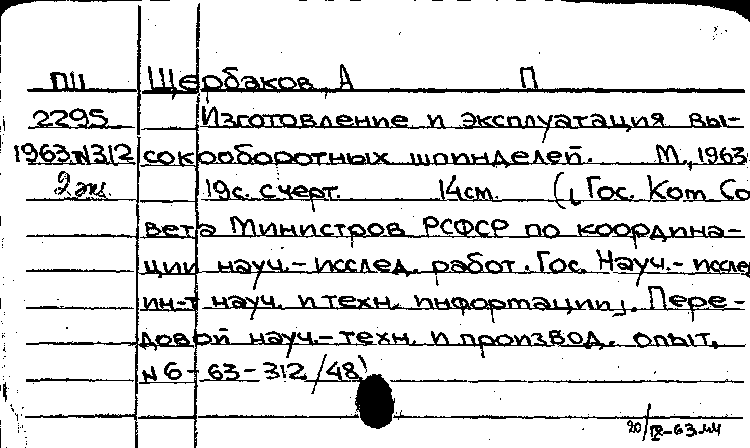 ПШ Щербаков, А П
2295 Изготовление и эксплуатация вы-
1963 N312 сокооборотных шпинделей. М., 1963
2 экз. 19с. с черт. 14см. (Гос. Ком. Со
вета Министров РСФСР по координа-
ции науч.-исслед. работ. Гос. Науч.-иссле
ин-т науч. и техн. информации). Пере-
довой науч.-техн. и производ. опыт,
N 6-63-312/48)
20/IX-63.